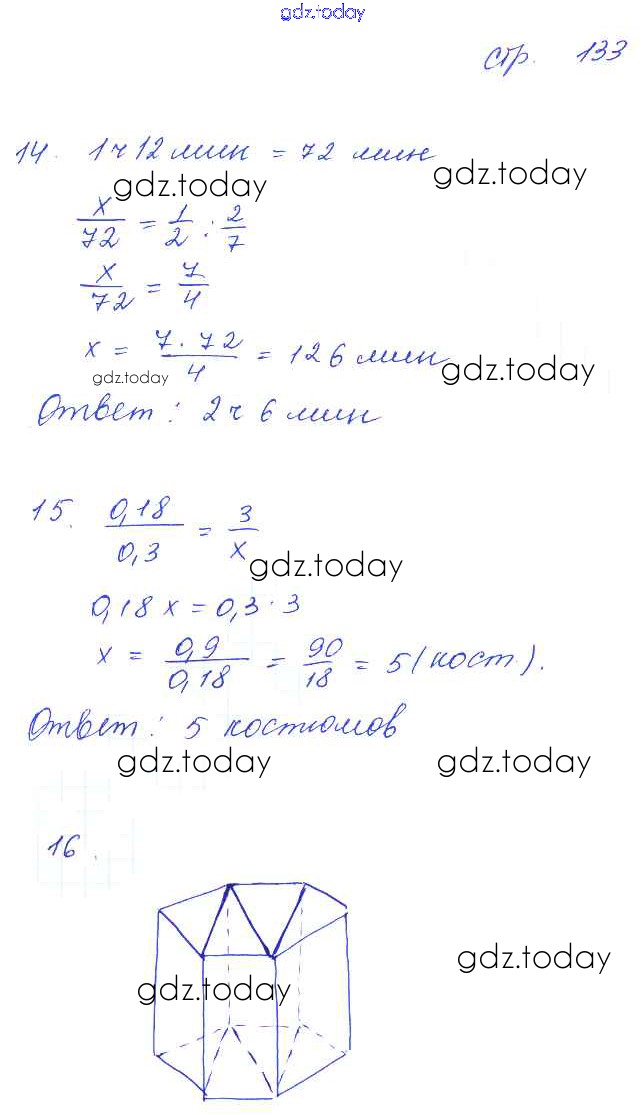 gdz.today
стр. 133
14. 1ч 12 мин = 72 мин
gdz.today gdz.today
x/72 = 1/2 : 2/7
x/72 = 7/4
x = 7·72/4 = 126 мин
gdz.today gdz.today
Ответ: 2ч 6 мин
15. 0,18/0,3 = 3/x
gdz.today
0,18x = 0,3·3
x = 0,9/0,18 = 90/18 = 5 (кост.).
Ответ: 5 костюмов
gdz.today gdz.today
16.
gdz.today
gdz.today